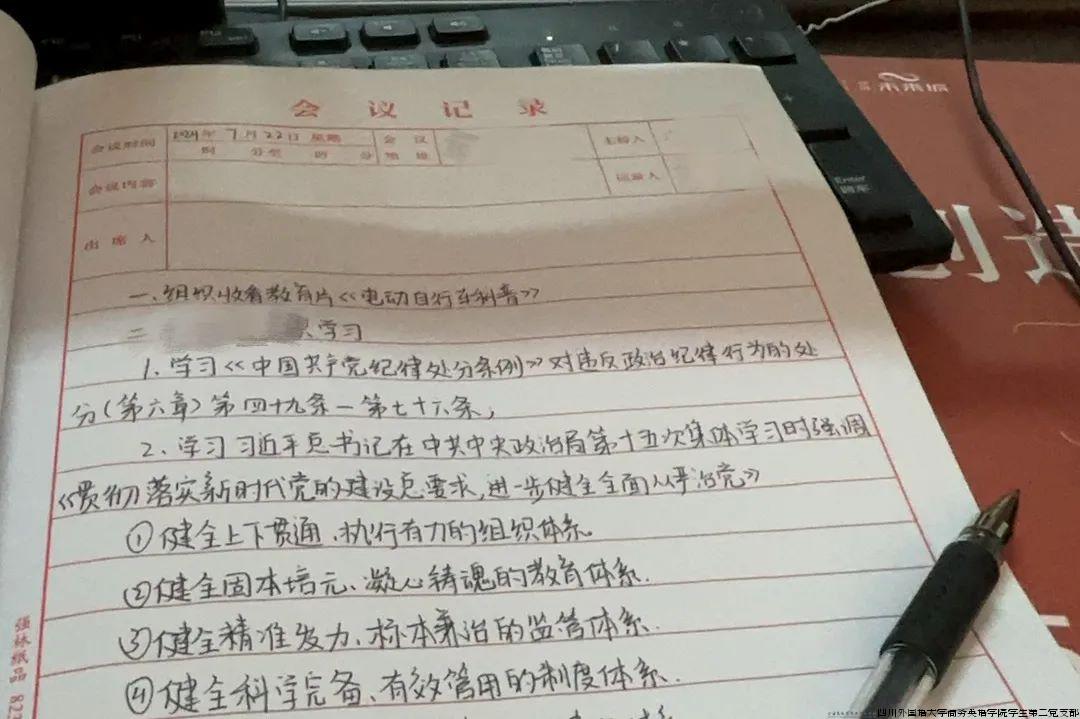 未来派
会议记录
会议时间 2024年7月22日 星期 会议 主持人
时 分至 时 分 地址
会议内容 记录人
出席人
Enter
回车
创造
一、组织收看教育片《电动自行车科普》
二 学习
1、学习《中国共产党纪律处分条例》对违反政治纪律行为的处
分(第六章)第四十九条一第七十六条;
2、学习习近平总书记在中共中央政治局第十五次集体学习时强调
《贯彻落实新时代党的建设总要求,进一步健全全面从严治党》
①健全上下贯通、执行有力的组织体系.
②健全固本培元、凝心铸魂的教育体系.
③健全精准发力、标本兼治的监管体系.
④健全科学完备、有效管用的制度体系.
强林纸品 827
四川外国语大学商务英语学院学生第二党支部